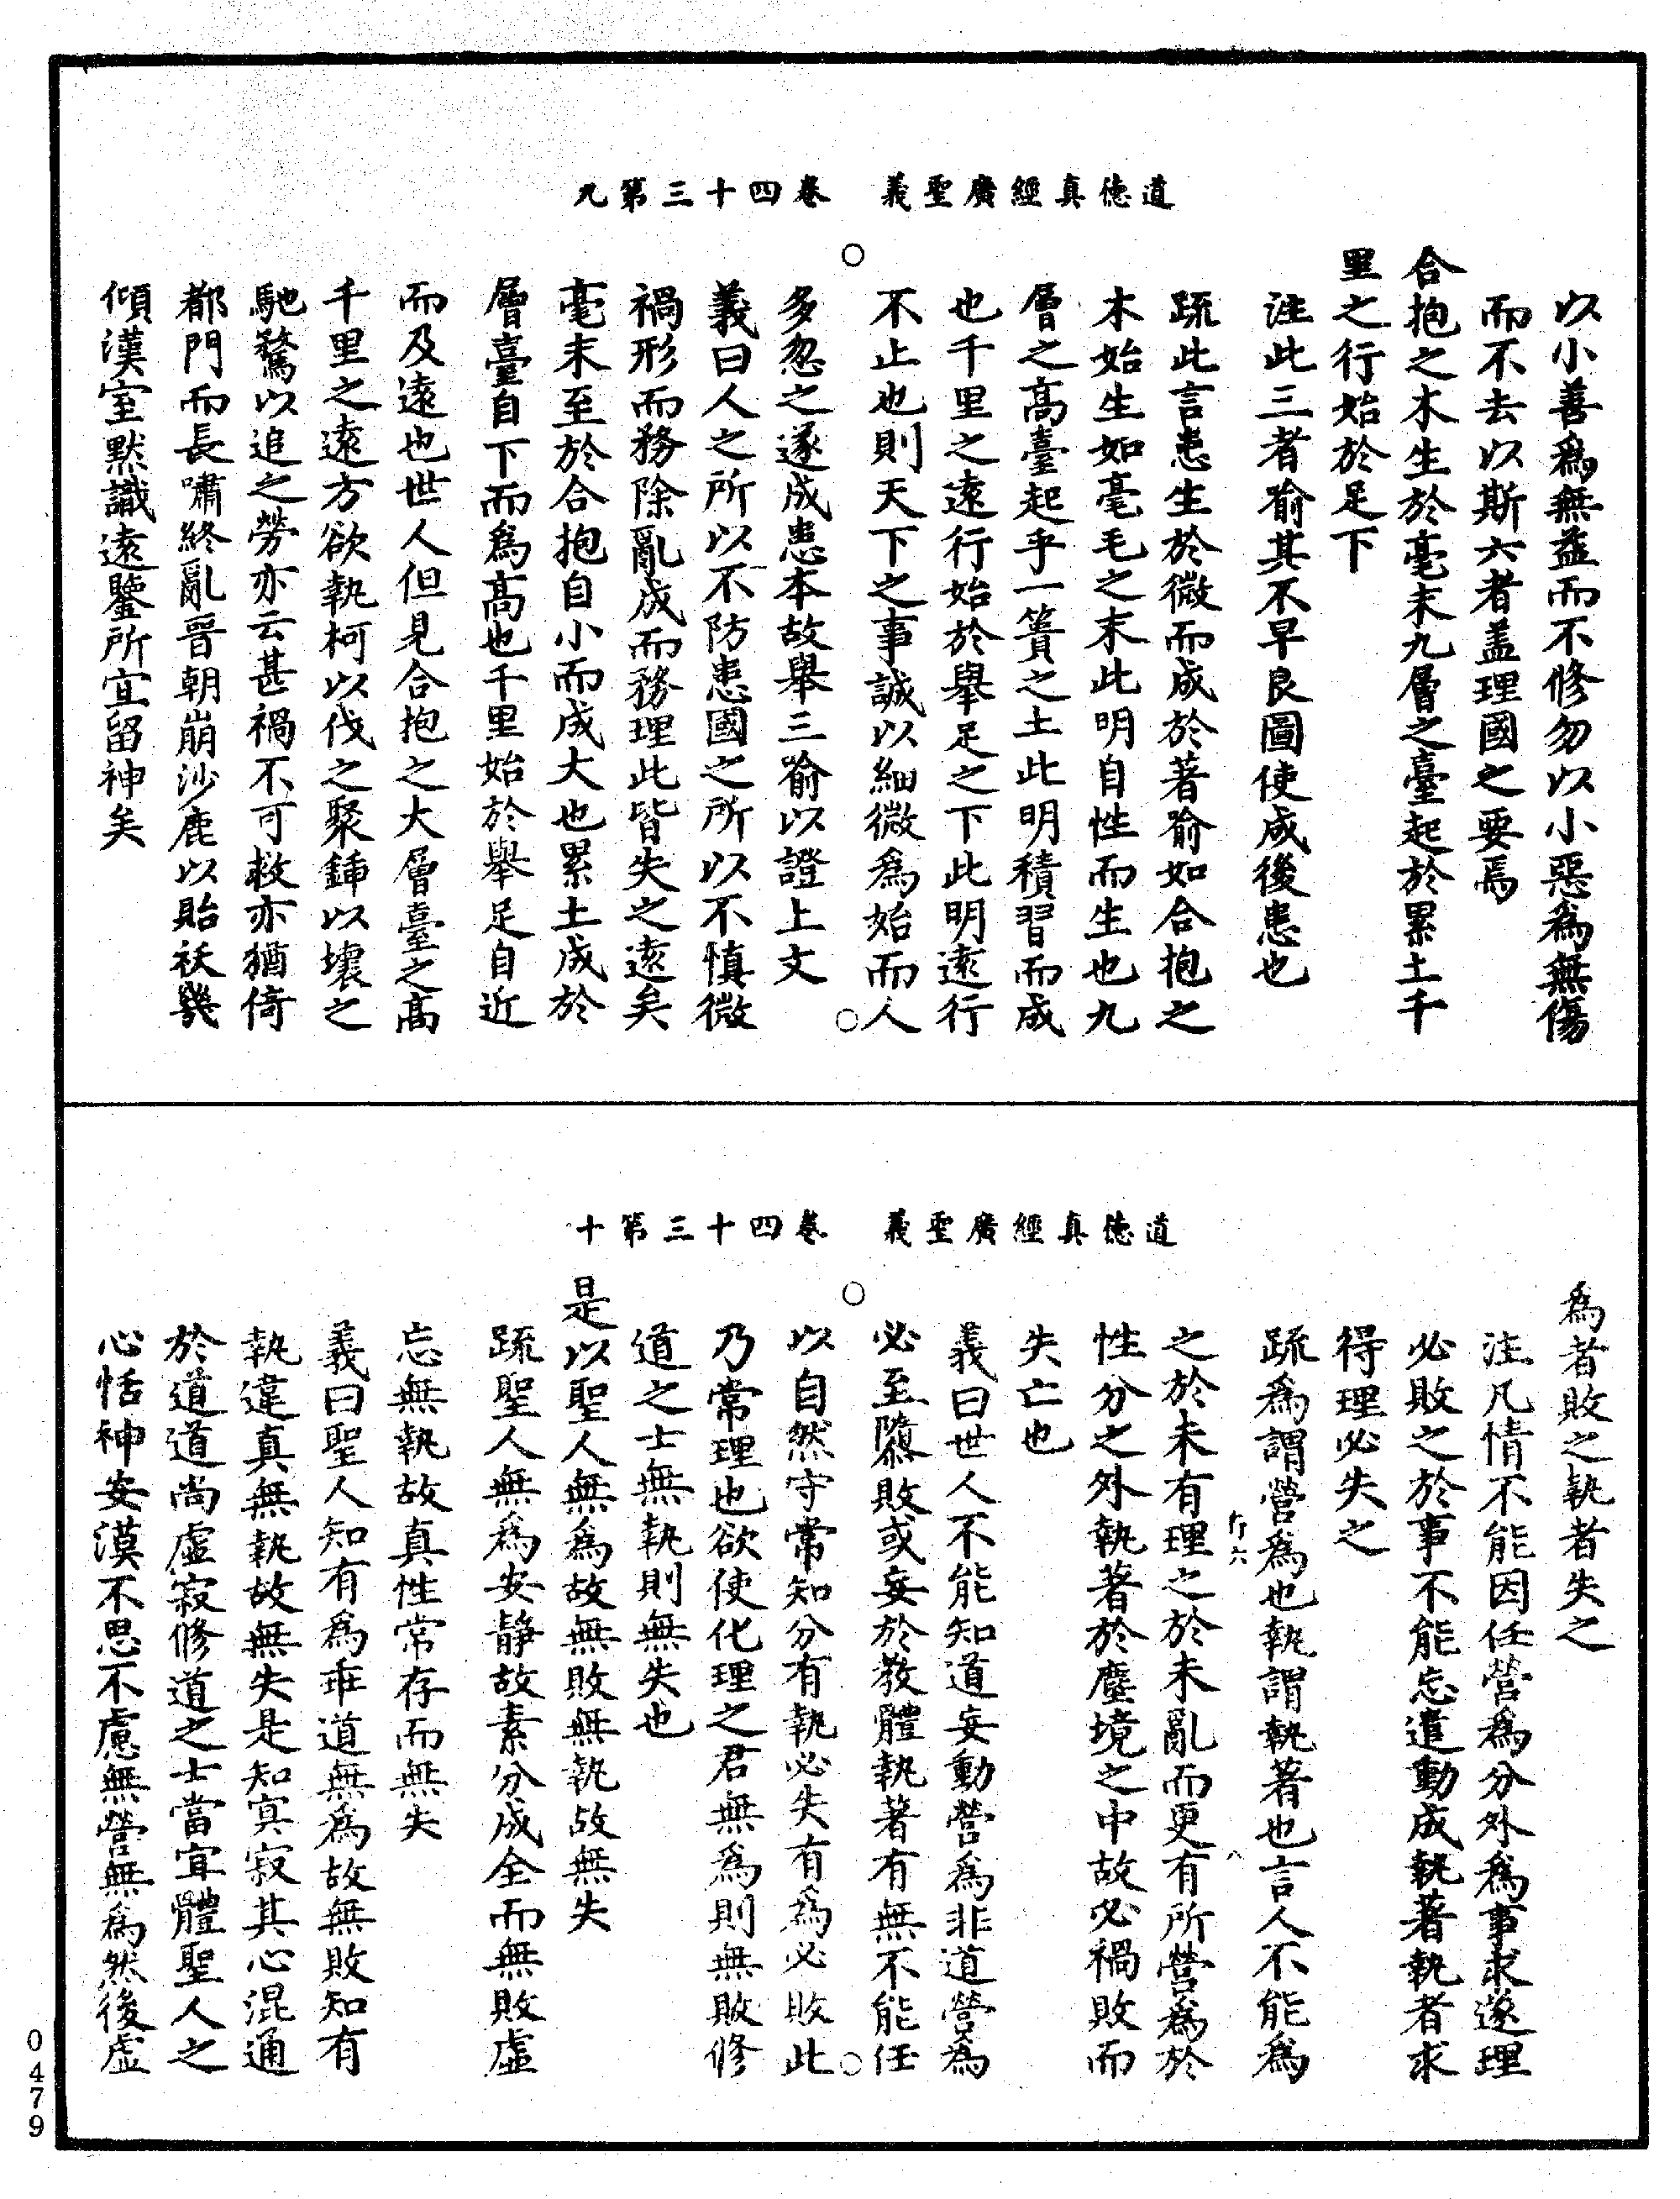 道德真經廣聖義　卷四十三第九
以小善爲無益而不修勿以小惡爲無傷
而不去以斯六者盖理國之要焉
合抱之木生於毫末九層之臺起於累土千
里之行始於足下
注此三者喻其不早良圖使成後患也
疏此言患生於微而成於著喻如合抱之
木始生如毫毛之末此明自性而生也九
層之高臺起乎一簣之土此明積習而成
也千里之遠行始於舉足之下此明遠行
不止也則天下之事誠以細微爲始而人
多忽之遂成患本故舉三喻以證上文
義曰人之所以不防患國之所以不慎微
禍形而務除亂成而務理此皆失之遠矣
毫末至於合抱自小而成大也累土成於
層臺自下而爲高也千里始於舉足自近
而及遠也世人但見合抱之大層臺之高
千里之遠方欲執柯以伐之聚鍤以壞之
馳騖以追之勞亦云甚禍不可救亦猶倚
都門而長嘯終亂晉朝崩沙鹿以貽祅幾
傾漢室默識遠鑒所宜留神矣
道德真經廣聖義　卷四十三第十
爲者敗之執者失之
注凡情不能因任營爲分外爲事求遂理
必敗之於事不能忘遣動成執著執者求
得理必失之
疏爲謂營爲也執謂執著也言人不能爲
之於未有理之於未亂而更有所營爲於
性分之外執著於塵境之中故必禍敗而
失亡也
義曰世人不能知道妄動營爲非道營爲
必至隳敗或妄於教體執著有無不能任
以自然守常知分有執必失有爲必敗此
乃常理也欲使化理之君無爲則無敗修
道之士無執則無失也
是以聖人無爲故無敗無執故無失
疏聖人無爲安靜故素分成全而無敗虛
忘無執故真性常存而無失
義曰聖人知有爲乖道無爲故無敗知有
執違真無執故無失是知寞寂其心混通
於道道尚虛寂修道之士當宜體聖人之
心恬神安漠不思不慮無營無爲然後虛
0479